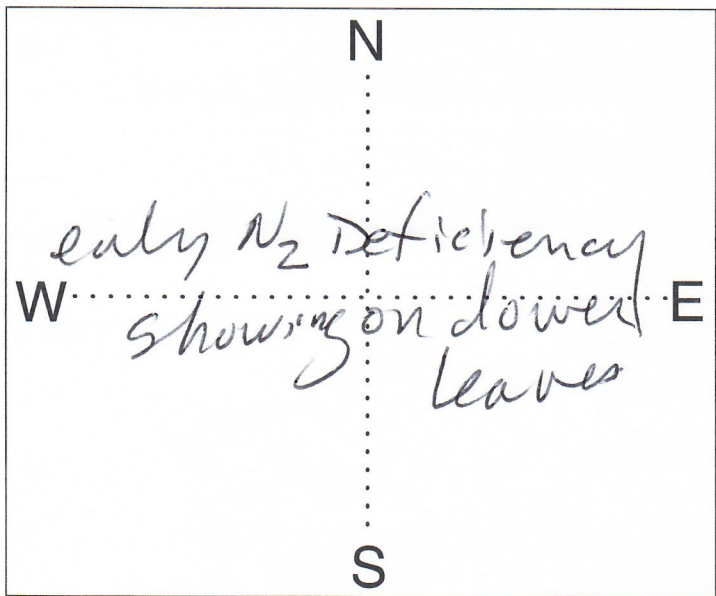 N
early N₂ Deficiency
W E
showing on lower
leaves
S